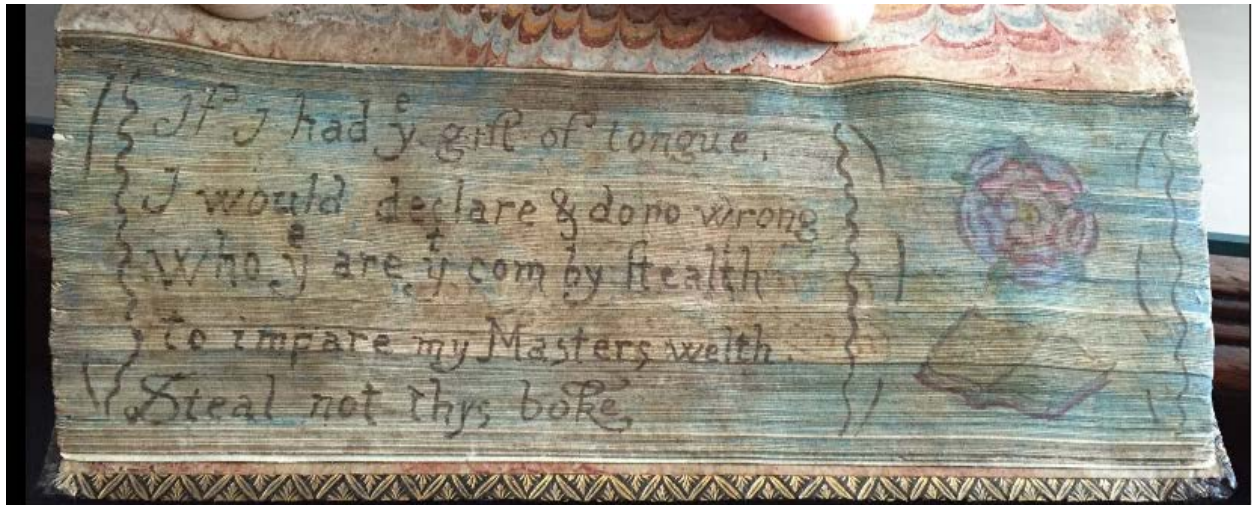 If J had yᵉ gift of tongue,
J would declare & do no wrong
Who yᵉ are yᵗ com by stealth
to impare my Masters welth.
Steal not thys boke,